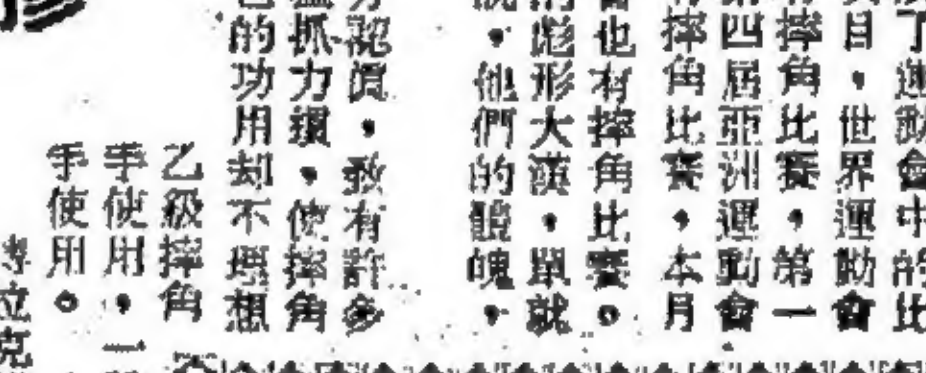 了運動會中的比
目，世界運動會
摔角比賽，第一
第四屆亞洲運動會
摔角比賽，本月
也有摔角比賽。
的彪形大漢，單就
，他們的體魄，
認真，致有許多
抓力猛，使摔角
的功用却不理想
乙級摔角
手使用，一
手使用。
專拉克